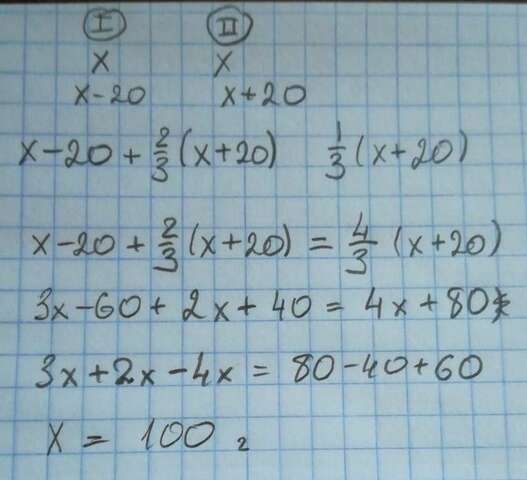 I II
x x
x-20 x+20
x-20+2/3(x+20) 1/3(x+20)
x-20+2/3(x+20)=4/3(x+20)
3x-60+2x+40=4x+80
3x+2x-4x=80-40+60
x=100 г